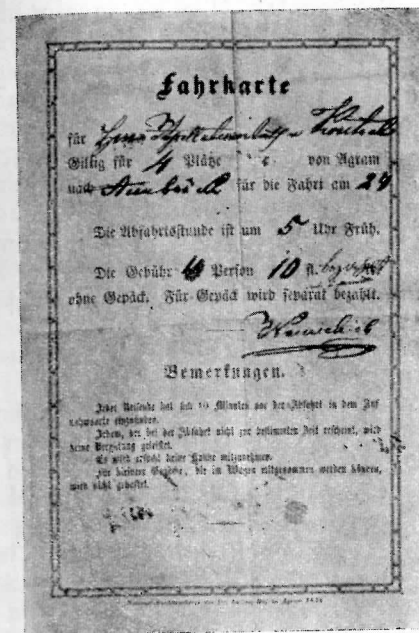 Fahrkarte
für
Giltig für 4 Plätze von Agram
nach für die Fahrt am 24
Die Abfahrtsstunde ist um 5 Uhr Früh.
Die Gebühr Person 10 fl.
ohne Gepäck. Für Gepäck wird separat bezahlt.
Bemerkungen.
Jeder Reisende hat sich 10 Minuten vor der Abfahrt in dem Auf
nahmsorte einzufinden.
Jedem, der bei der Abfahrt nicht zur bestimmten Zeit erscheint, wird
keine Vergütung geleistet.
Es wird ersucht keine Hunde mitzunehmen.
Für kleinere Gepäcke, die im Wagen mitgenommen werden können,
wird nicht gehaftet.